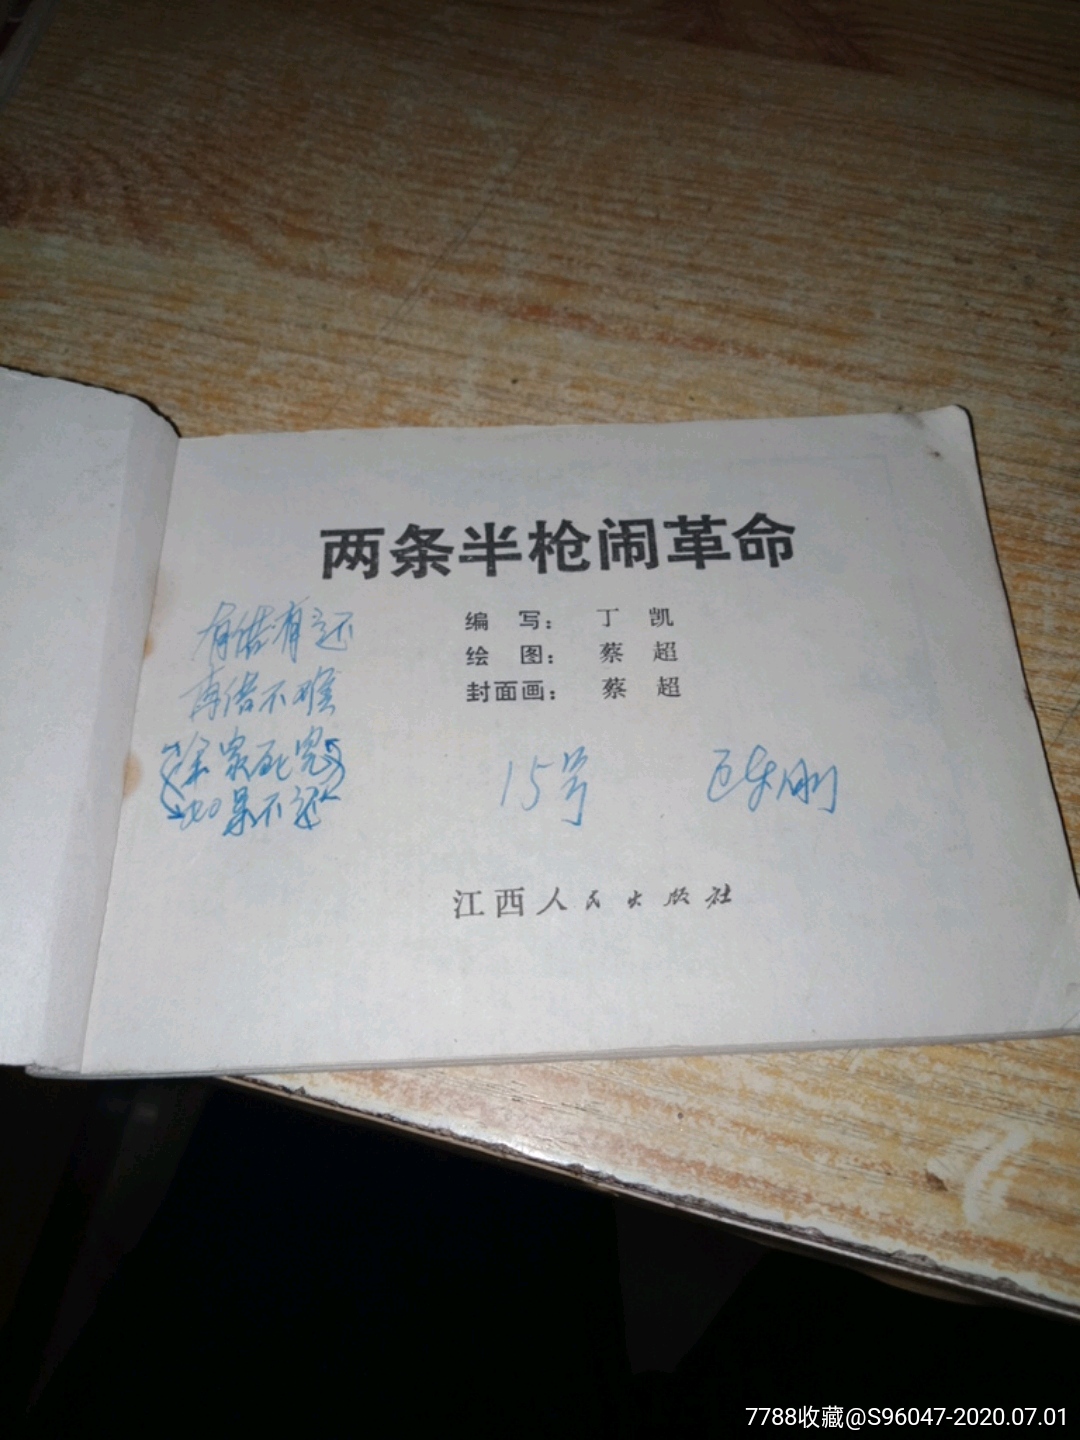 两条半枪闹革命
编 写： 丁 凯
绘 图： 蔡 超
封面画： 蔡 超
有借有还
再借不难
全家死完
如果不还
15号 刚
江西人民出版社
7788收藏@S96047-2020.07.01